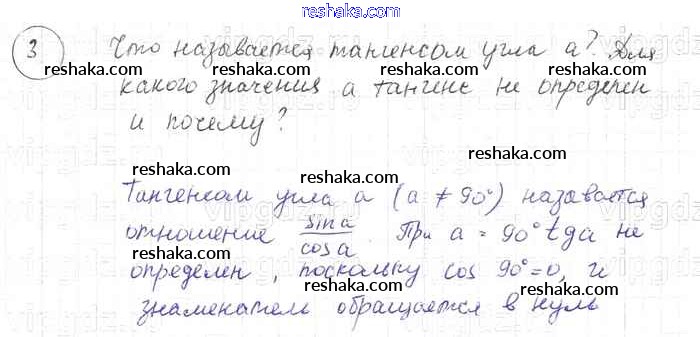 reshaka.com
3 Что называется тангенсом угла а? Для
reshaka.com reshaka.com reshaka.com
какого значения а тангенс не определен
и почему?
reshaka.com reshaka.com
reshaka.com reshaka.com
Тангенсом угла а (а ≠ 90°) называется
отношение sin a / cos a. При а = 90° tg a не
reshaka.com reshaka.com
определен, поскольку cos 90° = 0, и
знаменатель обращается в нуль
reshaka.com reshaka.com reshaka.com